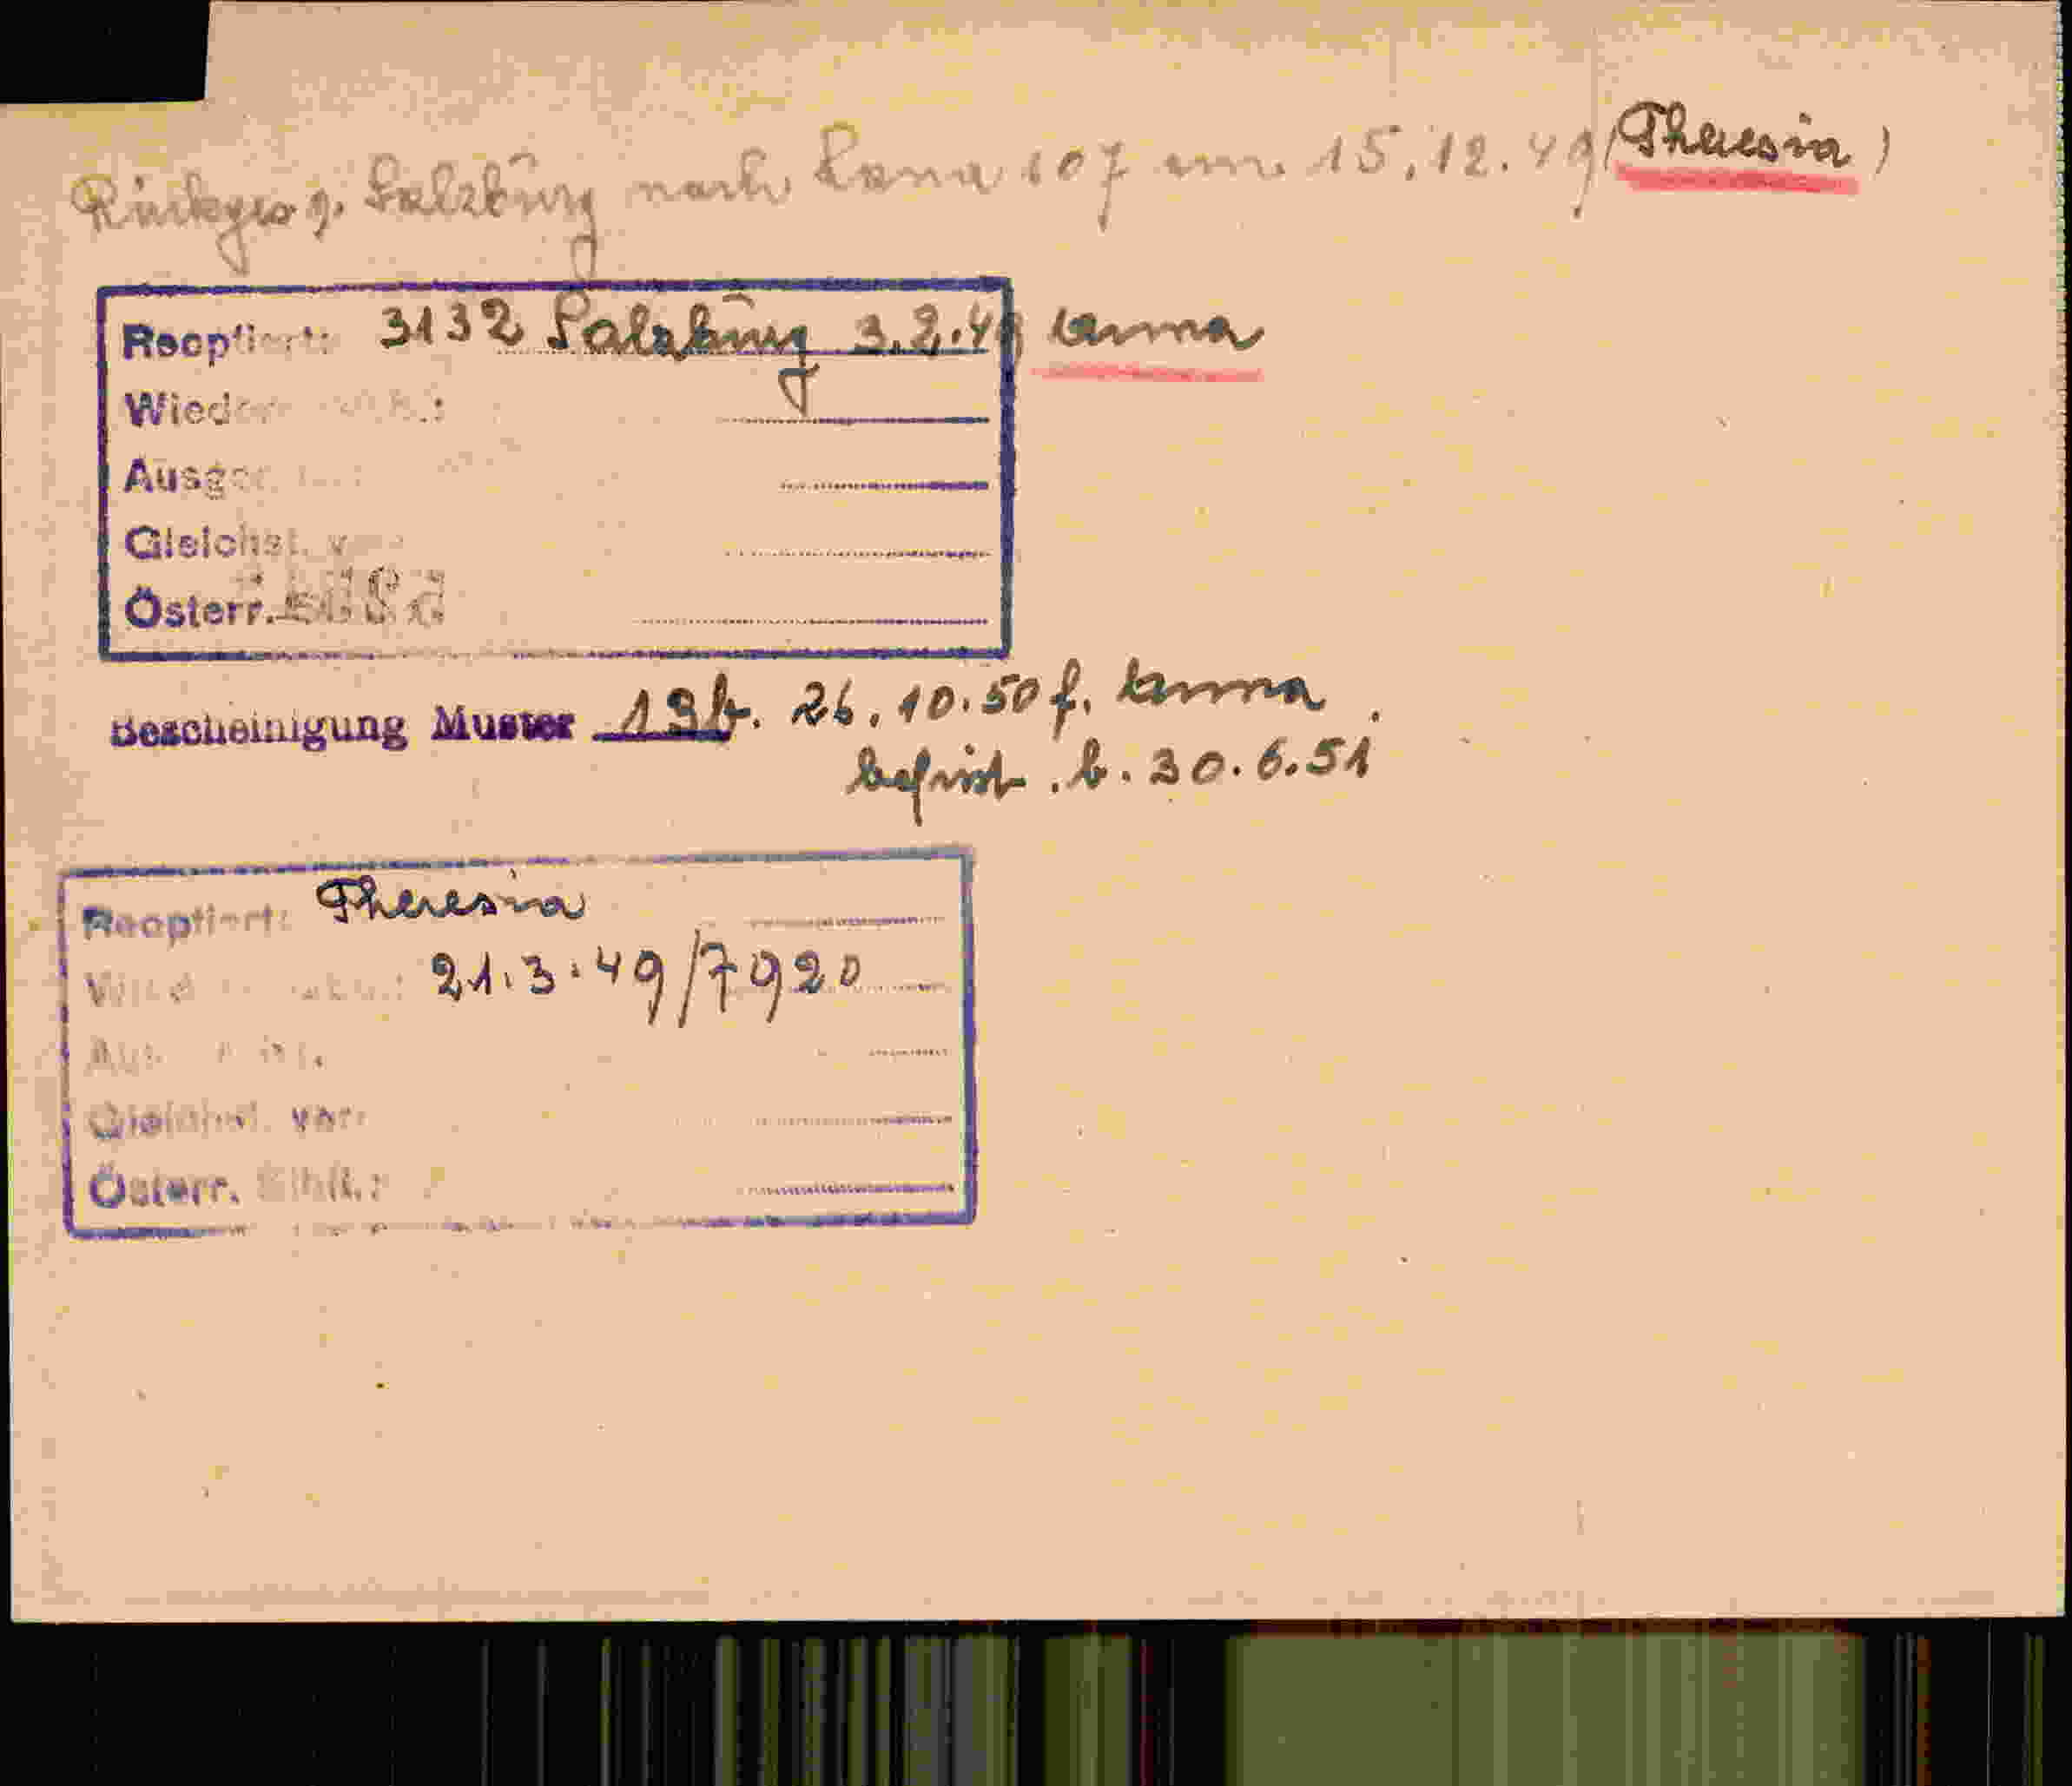 Rückges g. Salzburg nach Lana 107 am 15.12.49 (Theresia)
Reoptiert: 3132 Salzburg 3.2.49 Anna
Gleichst. v
Österr.
Bescheinigung Muster 19b. 26.10.50 f. Anna.
befrist. b. 30.6.51
Reoptiert: Theresia
21.3.49/7920
Gleichst. v
Österr.